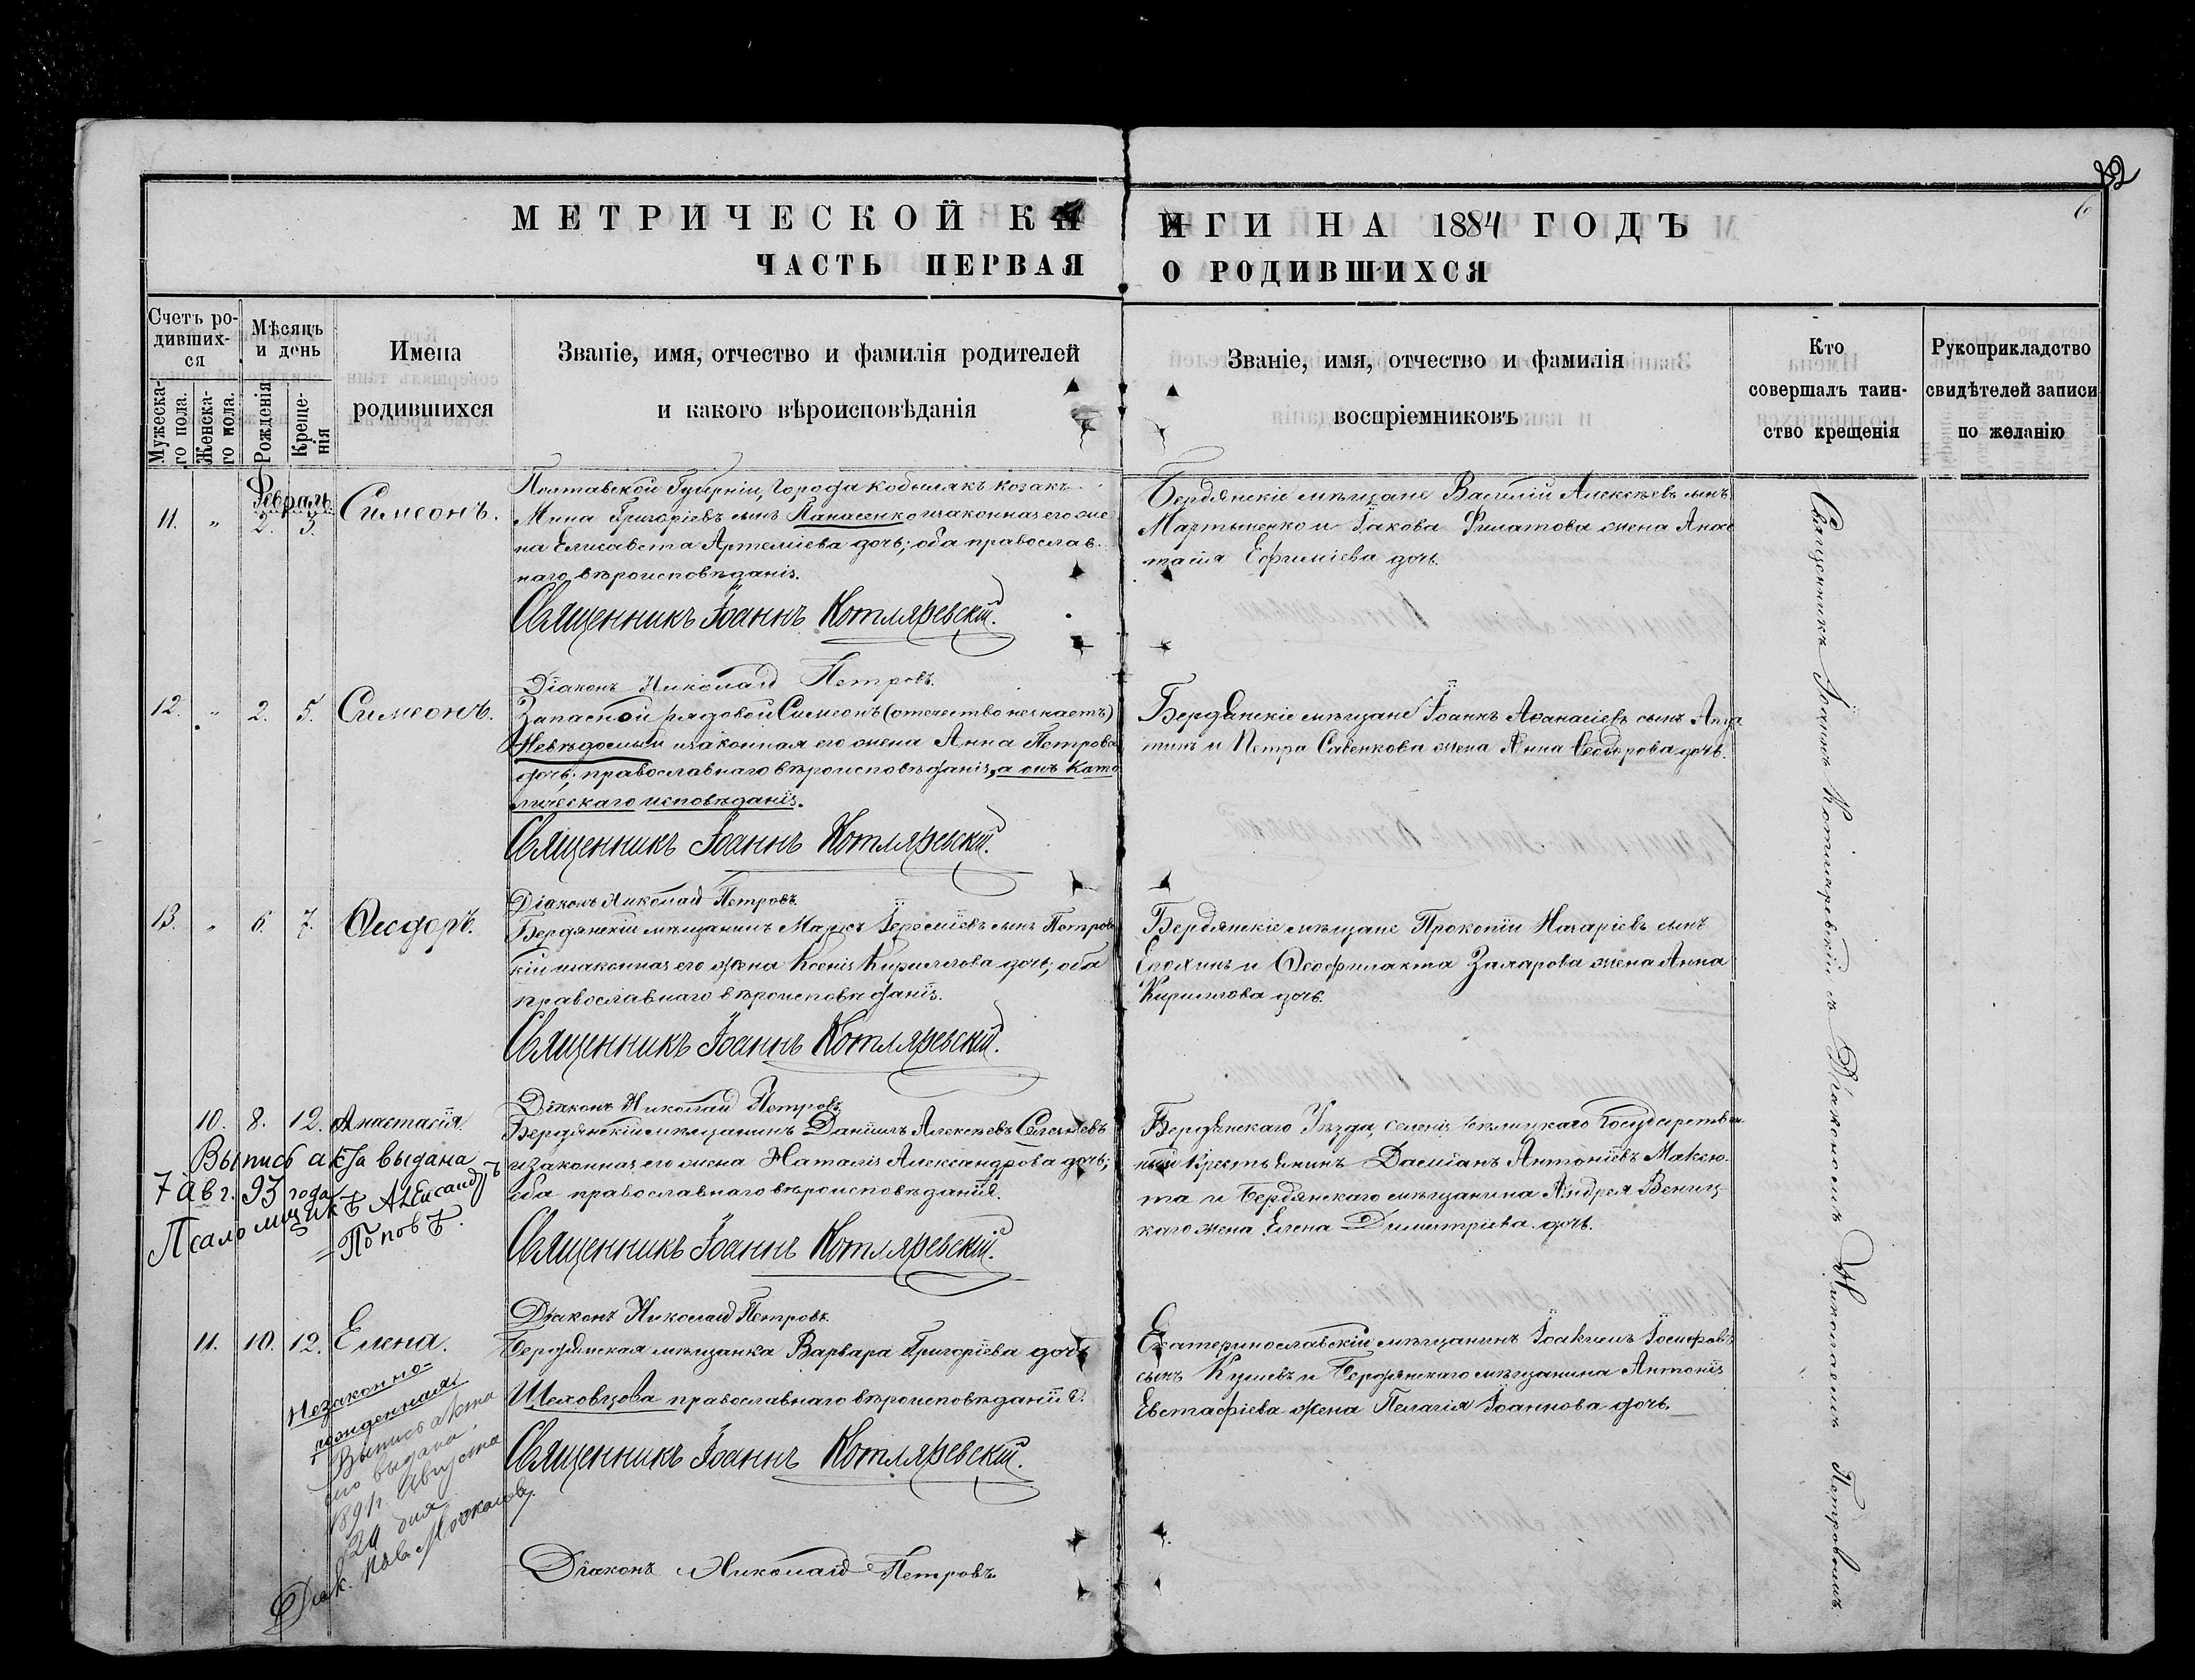 МЕТРИЧЕСКОЙ КНИГИ НА 1884 ГОДЪ
ЧАСТЬ ПЕРВАЯ О РОДИВШИХСЯ
6
Счетъ ро-
дивших-
ся
Мужеска-
го пола.
Женска-
го пола.
Мѣсяцъ
и день
Рожденія
Креще-
нія
Имена
родившихся
Званіе, имя, отчество и фамилія родителей
и какого вѣроисповѣданія
Званіе, имя, отчество и фамилія
воспріемниковъ
Кто
совершалъ таин-
ство крещенія
Рукоприкладство
свидѣтелей записи
по желанію
Февраль
11. " 2. 3. Симеонъ.
Полтавской Губерніи, города Кобылякъ козакъ
Мина Григоріевъ сынъ Панасенко и законная его же
на Елисавета Артеміева дочь; оба православ-
наго вѣроисповѣданія.
Священникъ Іоаннъ Котляревскій.
Діаконъ Николай Петровъ.
Бердянскіе мѣщане Василій Алексѣевъ сынъ
Мартыненко и Іакова Филатова жена Анас
тасія Ефиміева дочь.
12. " 2. 5. Симеонъ.
Запасной рядовой Симеонъ (отечество не знаетъ)
Невѣдомый и законная его жена Анна Петрова
дочь; православнаго вѣроисповѣданія, а онъ като
лическаго исповѣданія.
Священникъ Іоаннъ Котляревскій.
Діаконъ Николай Петровъ.
Бердянскіе мѣщане Іоаннъ Аѳанасіевъ сынъ
и Петра Савенкова жена Анна Ѳеодорова дочь.
13. " 6. 7. Ѳеодоръ.
Бердянскій мѣщанинъ Маркъ Іереміевъ сынъ Петров
кій и законная его жена Ксенія Кириллова дочь; оба
православнаго вѣроисповѣданія.
Священникъ Іоаннъ Котляревскій.
Діаконъ Николай Петровъ
Бердянскіе мѣщане Прокопій Назаріевъ сынъ
и Ѳеофилакта Захарова жена Анна
Кириллова дочь.
10. 8. 12. Анастасія.
Выпись акта выдана
7 Авг. 93 года
Псаломщикъ Александръ
Поповъ.
Бердянскій мѣщанинъ Даніилъ Алексѣевъ Селезневъ
и законная его жена Наталія Александрова дочь;
оба православнаго вѣроисповѣданія.
Священникъ Іоаннъ Котляревскій.
Діаконъ Николай Петровъ.
Бердянскаго Уѣзда, селенія Государствен
ный Крестьянинъ Даміанъ Антоніевъ Макею-
та и Бердянскаго мѣщанина Андрея Вениц-
каго жена Елена Димитріева дочь.
11. 10. 12. Елена.
Незаконно-
рожденная
Выпись акта
выдана
Августа
24 дня
Діак.
Бердянская мѣщанка Варвара Григоріева дочь
Шеховцова православнаго вѣроисповѣданія.
Священникъ Іоаннъ Котляревскій.
Діаконъ Николай Петровъ
Екатеринославскій мѣщанинъ Іоакимъ Іосифовъ
сынъ и Бердянскаго мѣщанина Антонія
Евстафіева жена Пелагія Іоаннова дочь.
Священникъ Іоаннъ Котляревскій съ Діакономъ Николаемъ Петровымъ.